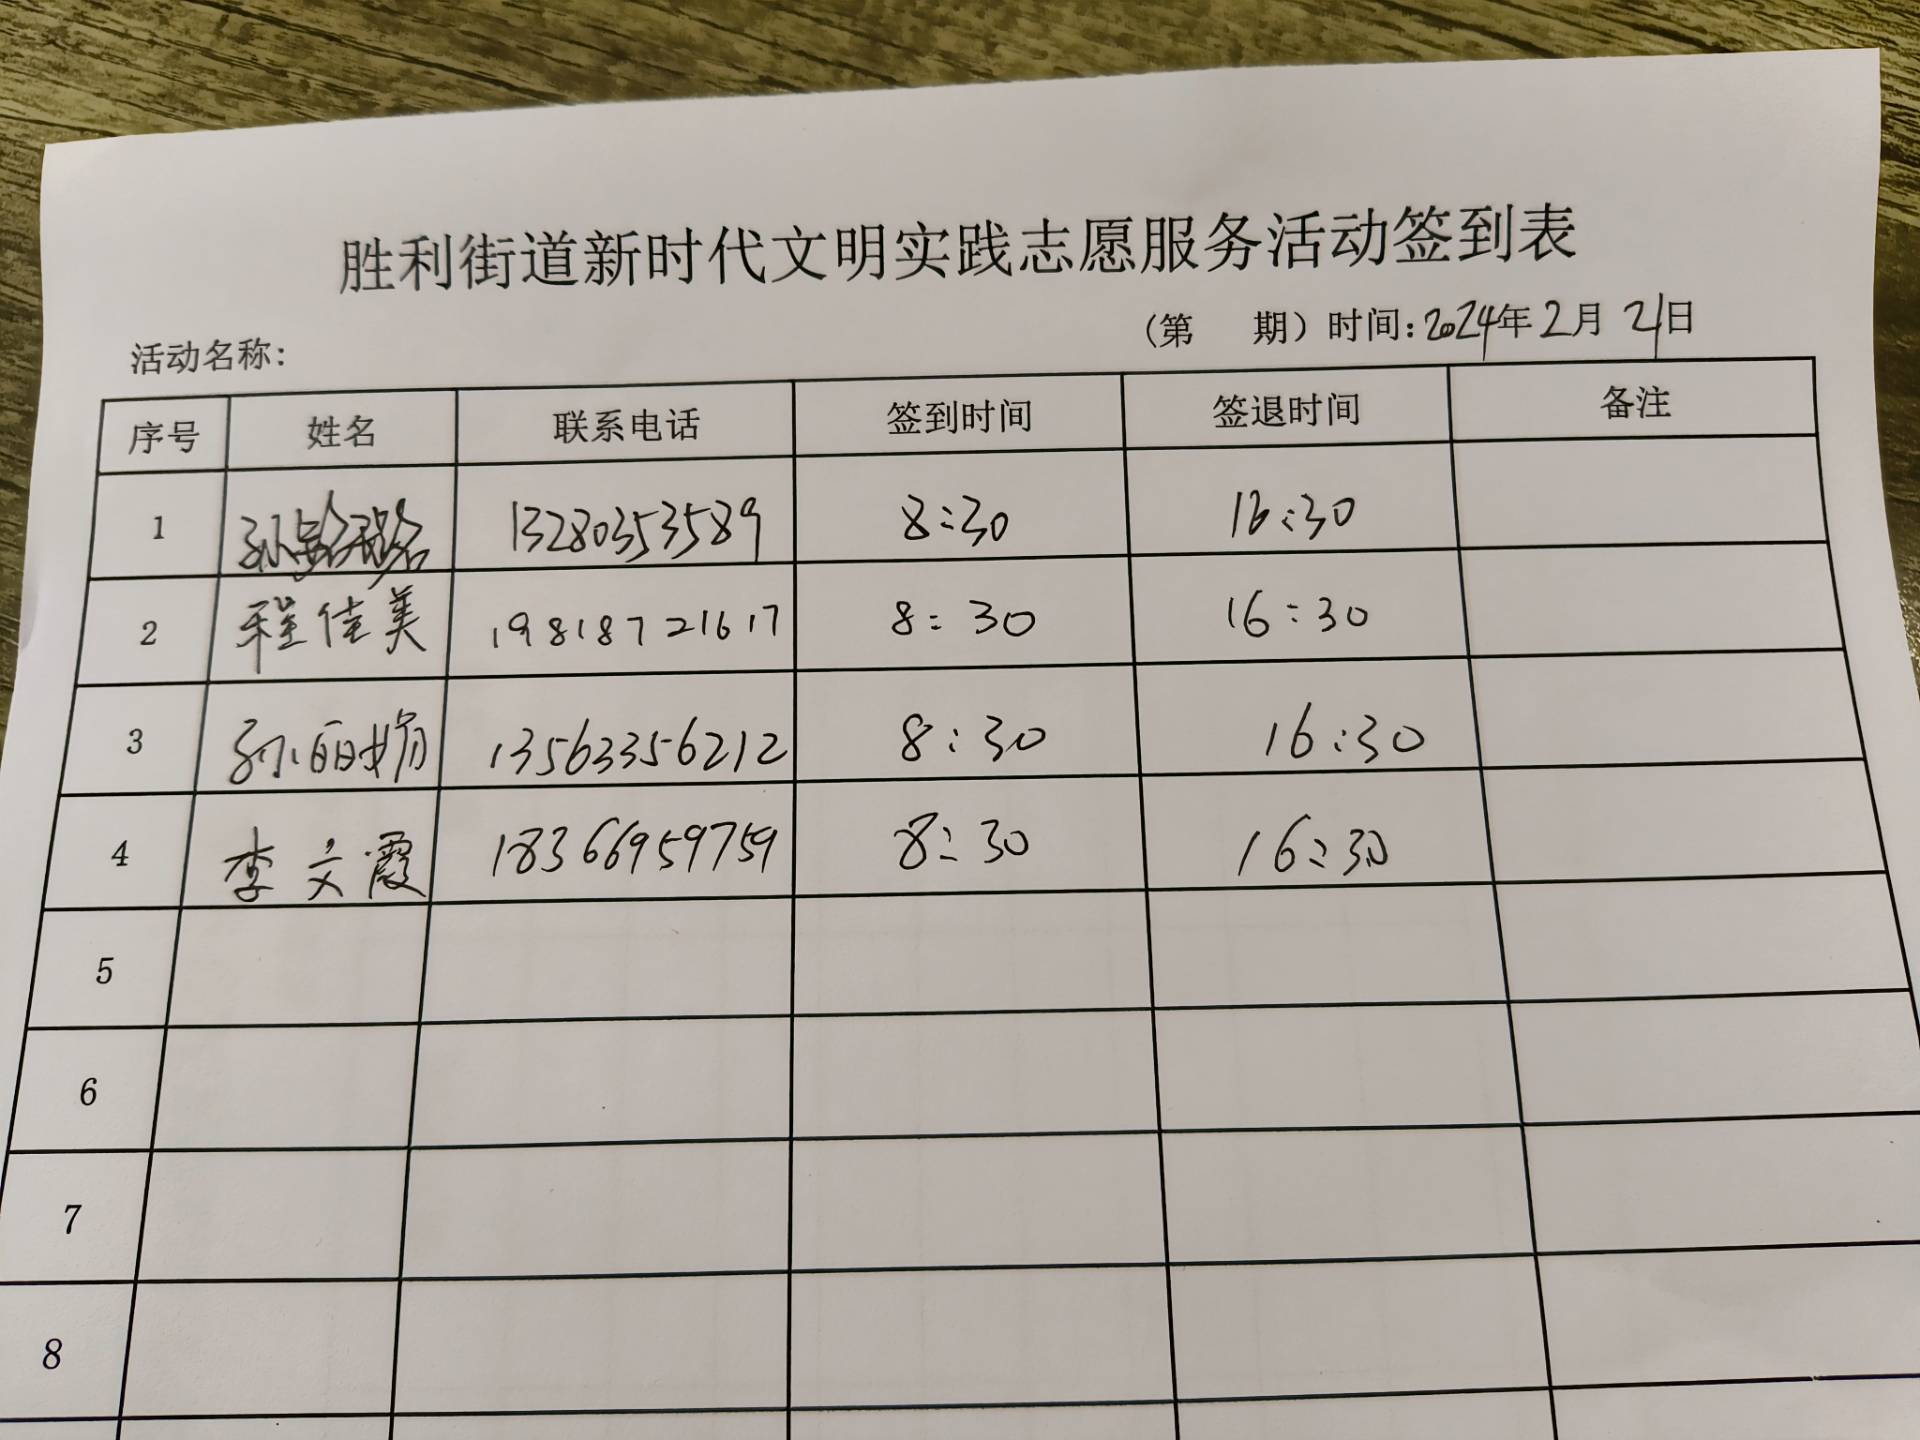 胜利街道新时代文明实践志愿服务活动签到表
(第 期）时间：2024年2月21日
活动名称：
序号 姓名 联系电话 签到时间 签退时间 备注
1 孙 13280353589 8:30 16:30
2 程佳美 19818721617 8:30 16:30
3 孙丽娟 13563356212 8:30 16:30
4 李文霞 18366959759 8:30 16:30
5
6
7
8